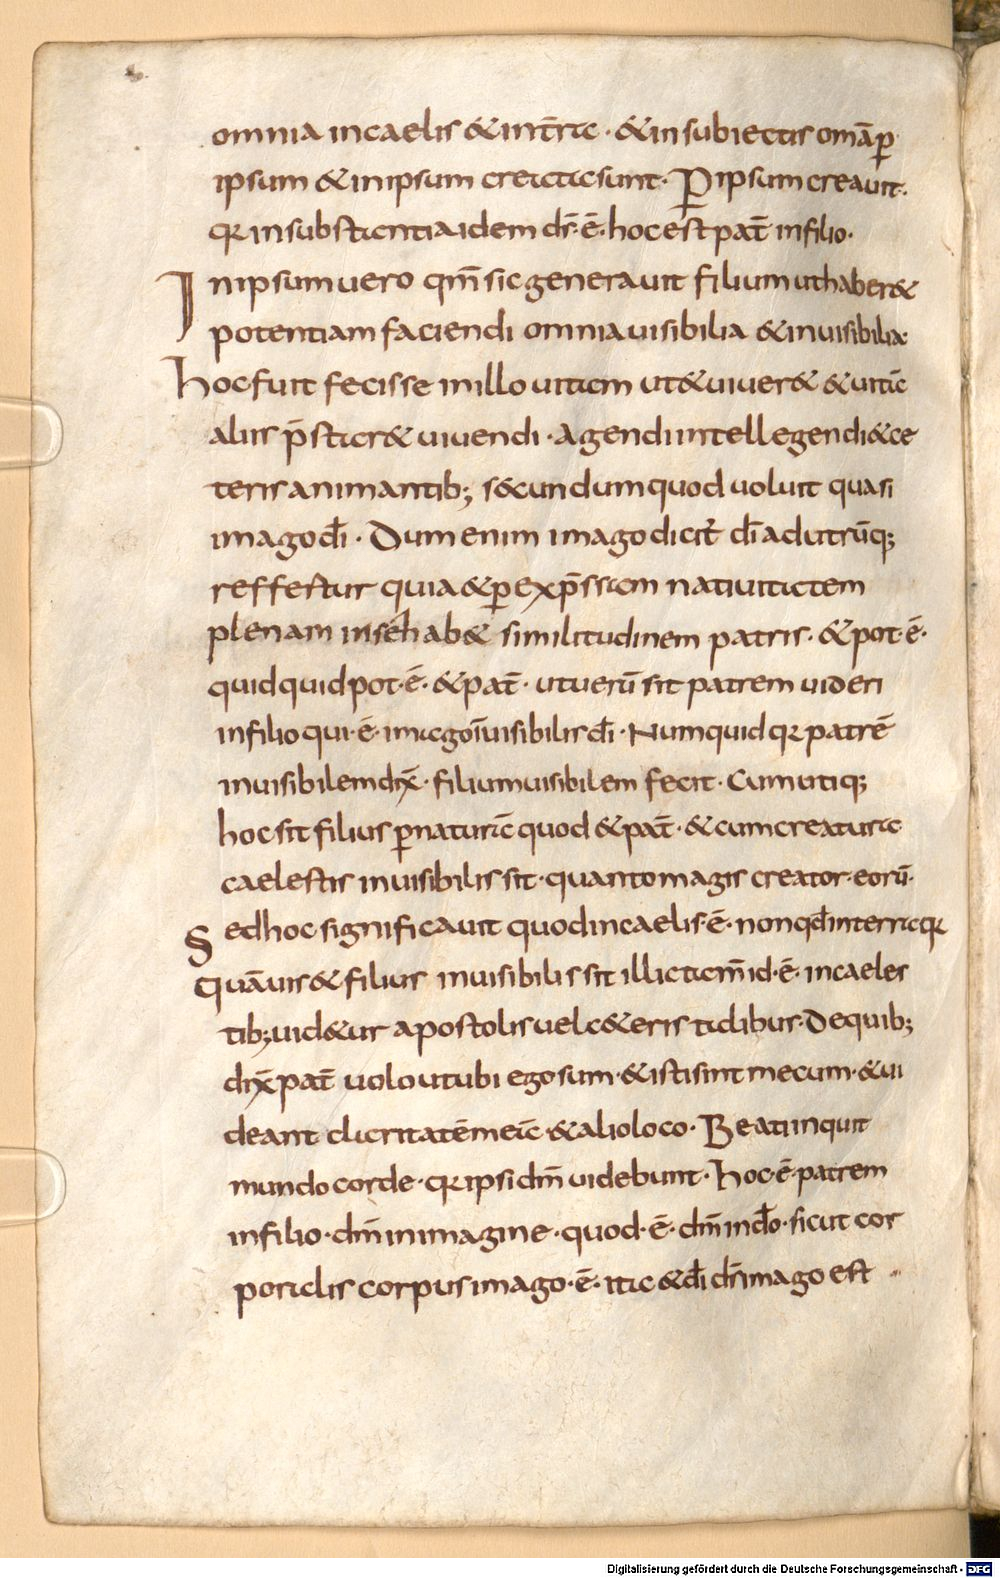 omnia in caelis & in t̄ra · & in subiectis om̄a ꝑ
ipsum & in ipsum creata sunt. Per ipsum creauit.
qr in substantia idem dr̄ · ē · hoc est pat̄ in filio.
In ipsum uero qm̄ sic generauit filium ut haber&
potentiam faciendi omnia uisibilia & inuisibilia.
hoc fuit fecisse in illo uitam ut & uiuer& & uitā
aliis p̄star& uiuendi · agendi intellegendi & ce
teris animantib; secundum quod uoluit quasi
imago dī · Dum enim imago dicit̄ dī ad utrūq;
reffertur quia & ꝑ exp̄ssam natiuitatem
plenam in se hab& similitudinem patris · & pot · ē ·
quidquid pot · ē · & pat̄ · ut uerū sit patrem uideri
in filio qui · ē · imago īuisibilis dī · Numquid qr patrē
inuisibilem dix̄ · filium uisibilem fecit · Cum utiq;
hoc sit filius ꝑ naturā quod & pat̄ · & cum creatura
caelestis inuisibilis sit · quanto magis creator · eorū ·
Sed hoc significauit quod in caelis · ē · non qđ in terra qr
quāuis & filius inuisibilis sit illic tam̄ id · ē · in caeles
tib; uid&ur apostolis uel c&eris talibus · De quib;
dix̄ pat̄ uolo ut ubi ego sum · & isti sint mecum · & ui
deant claritatē meā · & alio loco · Beati inquit
mundo corde · qr ipsi dm̄ uidebunt · hoc · ē · patrem
in filio · dm̄ in imagine · quod · ē · dm̄ in dō · sicut cor
poralis corpus imago · ē · ita & dī ds̄ imago est
Digitalisierung gefördert durch die Deutsche Forschungsgemeinschaft - DFG